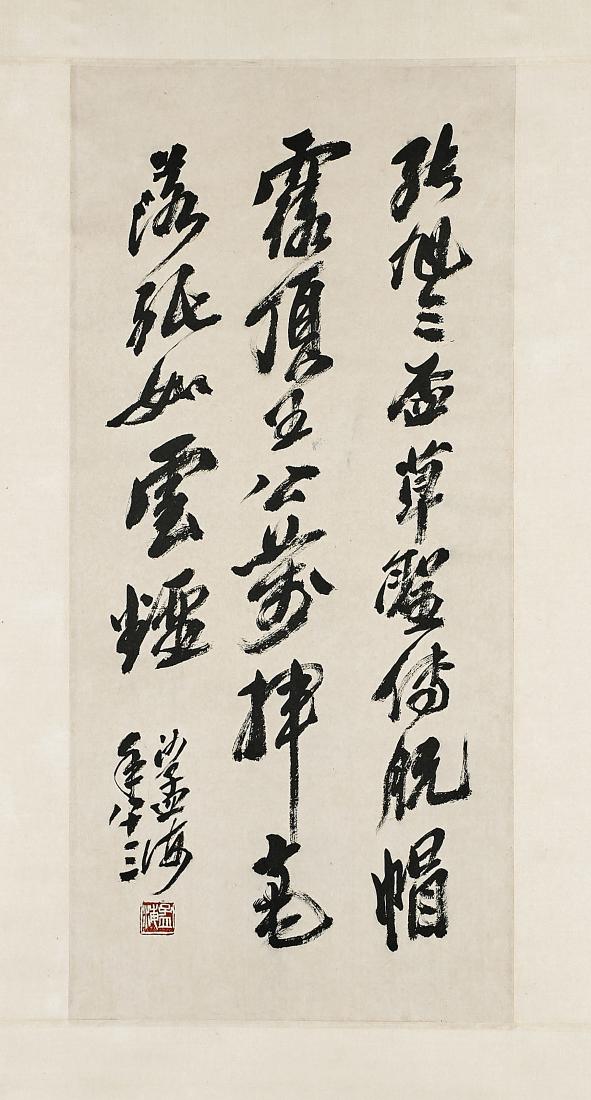 張旭三盃草聖傳脫帽
露頂王公前揮毫
落紙如雲煙
沙孟海
年八十三
孟海